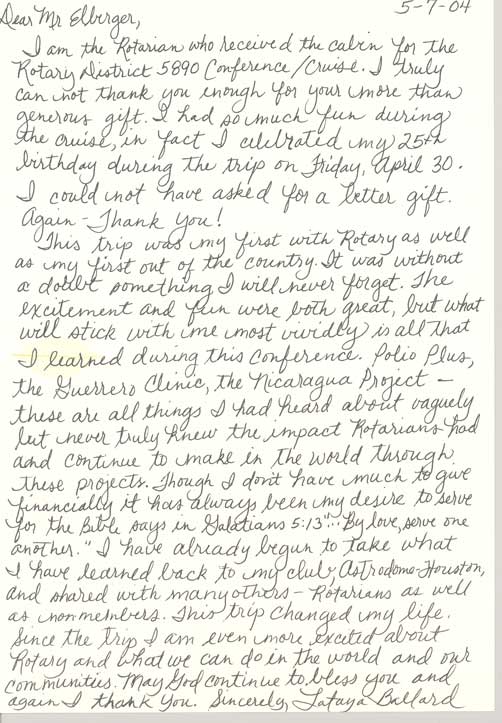 5-7-04
Dear Mr Elberger,
I am the Rotarian who received the cabin for the
Rotary District 5890 Conference/Cruise. I truly
can not thank you enough for your more than
generous gift. I had so much fun during
the cruise, in fact I celebrated my 25th
birthday during the trip on Friday, April 30.
I could not have asked for a better gift.
Again - Thank you!
This trip was my first with Rotary as well
as my first out of the country. It was without
a doubt something I will never forget. The
excitement and fun were both great, but what
will stick with me most vividly is all that
I learned during this conference. Polio Plus,
the Guerrero Clinic, the Nicaragua Project -
these are all things I had heard about vaguely
but never truly knew the impact Rotarians had
and continue to make in the world through
these projects. Though I don't have much to give
financially it has always been my desire to serve
for the Bible says in Galatians 5:13 "...By love, serve one
another." I have already begun to take what
I have learned back to my club, Astrodome-Houston,
and shared with many others - Rotarians as well
as nonmembers. This trip changed my life.
Since the trip I am even more excited about
Rotary and what we can do in the world and our
communities. May God continue to bless you and
again I thank you. Sincerely, Lataya Ballard